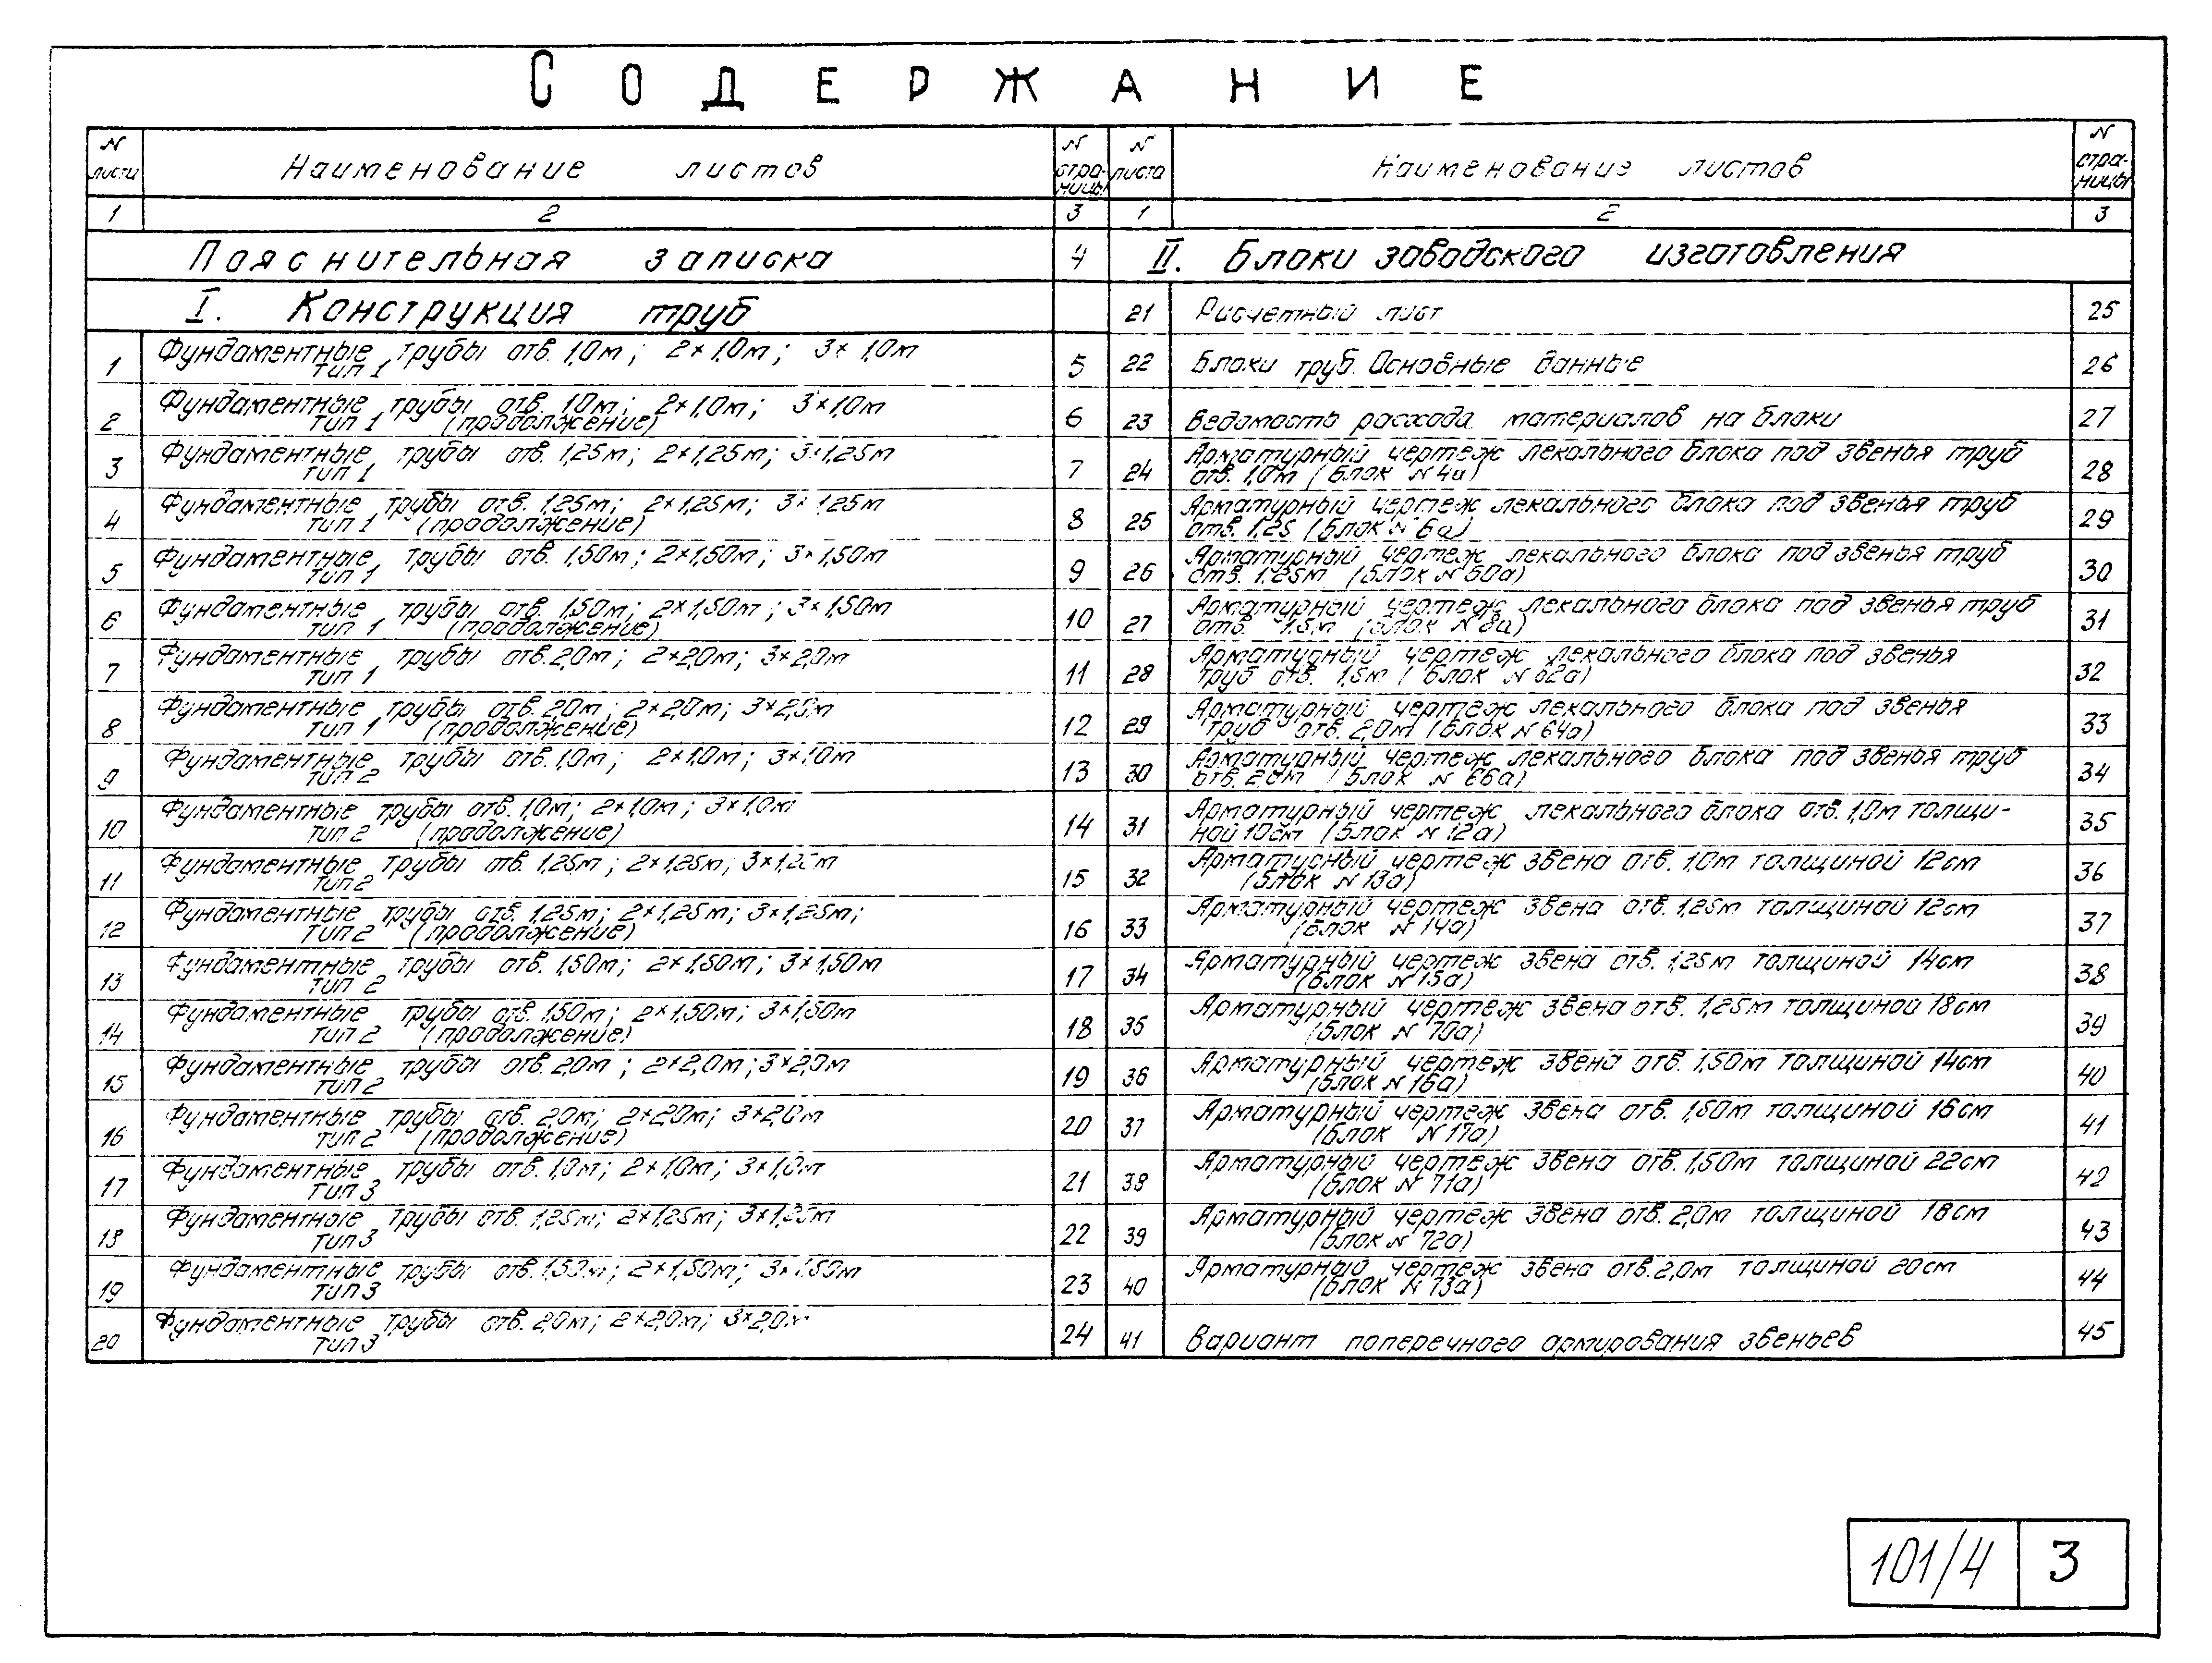 СОДЕРЖАНИЕ
N листа Наименование листов N страницы
1 2 3
Пояснительная записка 4
I. Конструкция труб
1 Фундаментные трубы отв. 1,0м; 2×1,0м; 3×1,0м
тип 1 5
2 Фундаментные трубы отв. 1,0м; 2×1,0м; 3×1,0м
тип 1 (продолжение) 6
3 Фундаментные трубы отв. 1,25м; 2×1,25м; 3×1,25м
тип 1 7
4 Фундаментные трубы отв. 1,25м; 2×1,25м; 3×1,25м
тип 1 (продолжение) 8
5 Фундаментные трубы отв. 1,50м; 2×1,50м; 3×1,50м
тип 1 9
6 Фундаментные трубы отв. 1,50м; 2×1,50м; 3×1,50м
тип 1 (продолжение) 10
7 Фундаментные трубы отв. 2,0м; 2×2,0м; 3×2,0м
тип 1 11
8 Фундаментные трубы отв. 2,0м; 2×2,0м;
тип 1 (продолжение) 12
9 Фундаментные трубы отв. 1,0м; 2×1,0м; 3×1,0м
тип 2 13
10 Фундаментные трубы отв. 1,0м; 2×1,0м; 3×1,0м
тип 2 (продолжение) 14
11 Фундаментные трубы отв. 1,25м; 2×1,25м; 3×1,25м
тип 2 15
12 Фундаментные трубы отв. 1,25м; 2×1,25м; 3×1,25м;
тип 2 (продолжение) 16
13 Фундаментные трубы отв. 1,50м; 2×1,50м; 3×1,50м
тип 2 17
14 Фундаментные трубы отв. 1,50м; 2×1,50м; 3×1,50м
тип 2 (продолжение) 18
15 Фундаментные трубы отв. 2,0м; 2×2,0м; 3×2,0м
тип 2 19
16 Фундаментные трубы отв. 2,0м; 2×2,0м; 3×2,0м
тип 2 (продолжение) 20
17 Фундаментные трубы отв. 1,0м; 2×1,0м; 3×1,0м
тип 3 21
18 Фундаментные трубы отв. 1,25м; 2×1,25м; 3×1,25м
тип 3 22
19 Фундаментные трубы отв. 1,50м; 2×1,50м; 3×1,50м
тип 3 23
20 Фундаментные трубы отв. 2,0м; 2×2,0м; 3×2,0м
тип 3 24
N листа Наименование листов N страницы
1 2 3
II. Блоки заводского изготовления
21 Расчетный лист 25
22 Блоки труб. Основные данные 26
23 Ведомость расхода материалов на блоки 27
24 Арматурный чертеж лекального блока под звенья труб
отв. 1,0м (блок N 4а) 28
25 Арматурный чертеж лекального блока под звенья труб
отв. 1,25 (блок N 6а) 29
26 Арматурный чертеж лекального блока под звенья труб
отв. 1,25м (блок N 60а) 30
27 Арматурный чертеж лекального блока под звенья труб
отв. 1,5м (блок N 8а) 31
28 Арматурный чертеж лекального блока под звенья
труб отв. 1,5м (блок N 62а) 32
29 Арматурный чертеж лекального блока под звенья
труб отв. 2,0м (блок N 64а) 33
30 Арматурный чертеж лекального блока под звенья труб
отв. 2,0м (блок N 66а) 34
31 Арматурный чертеж лекального блока отв. 1,0м толщи-
ной 10см (блок N 12а) 35
32 Арматурный чертеж звена отв. 1,0м толщиной 12см
(блок N 13а) 36
33 Арматурный чертеж звена отв. 1,25м толщиной 12см
(блок N 14а) 37
34 Арматурный чертеж звена отв. 1,25м толщиной 14см
(блок N 15а) 38
35 Арматурный чертеж звена отв. 1,25м толщиной 18см
(блок N 70а) 39
36 Арматурный чертеж звена отв. 1,50м толщиной 14см
(блок N 16а) 40
37 Арматурный чертеж звена отв. 1,50м толщиной 16см
(блок N 17а) 41
38 Арматурный чертеж звена отв. 1,50м толщиной 22см
(блок N 71а) 42
39 Арматурный чертеж звена отв. 2,0м толщиной 18см
(блок N 72а) 43
40 Арматурный чертеж звена отв. 2,0м толщиной 20см
(блок N 73а) 44
41 Вариант поперечного армирования звеньев 45
101/4 3